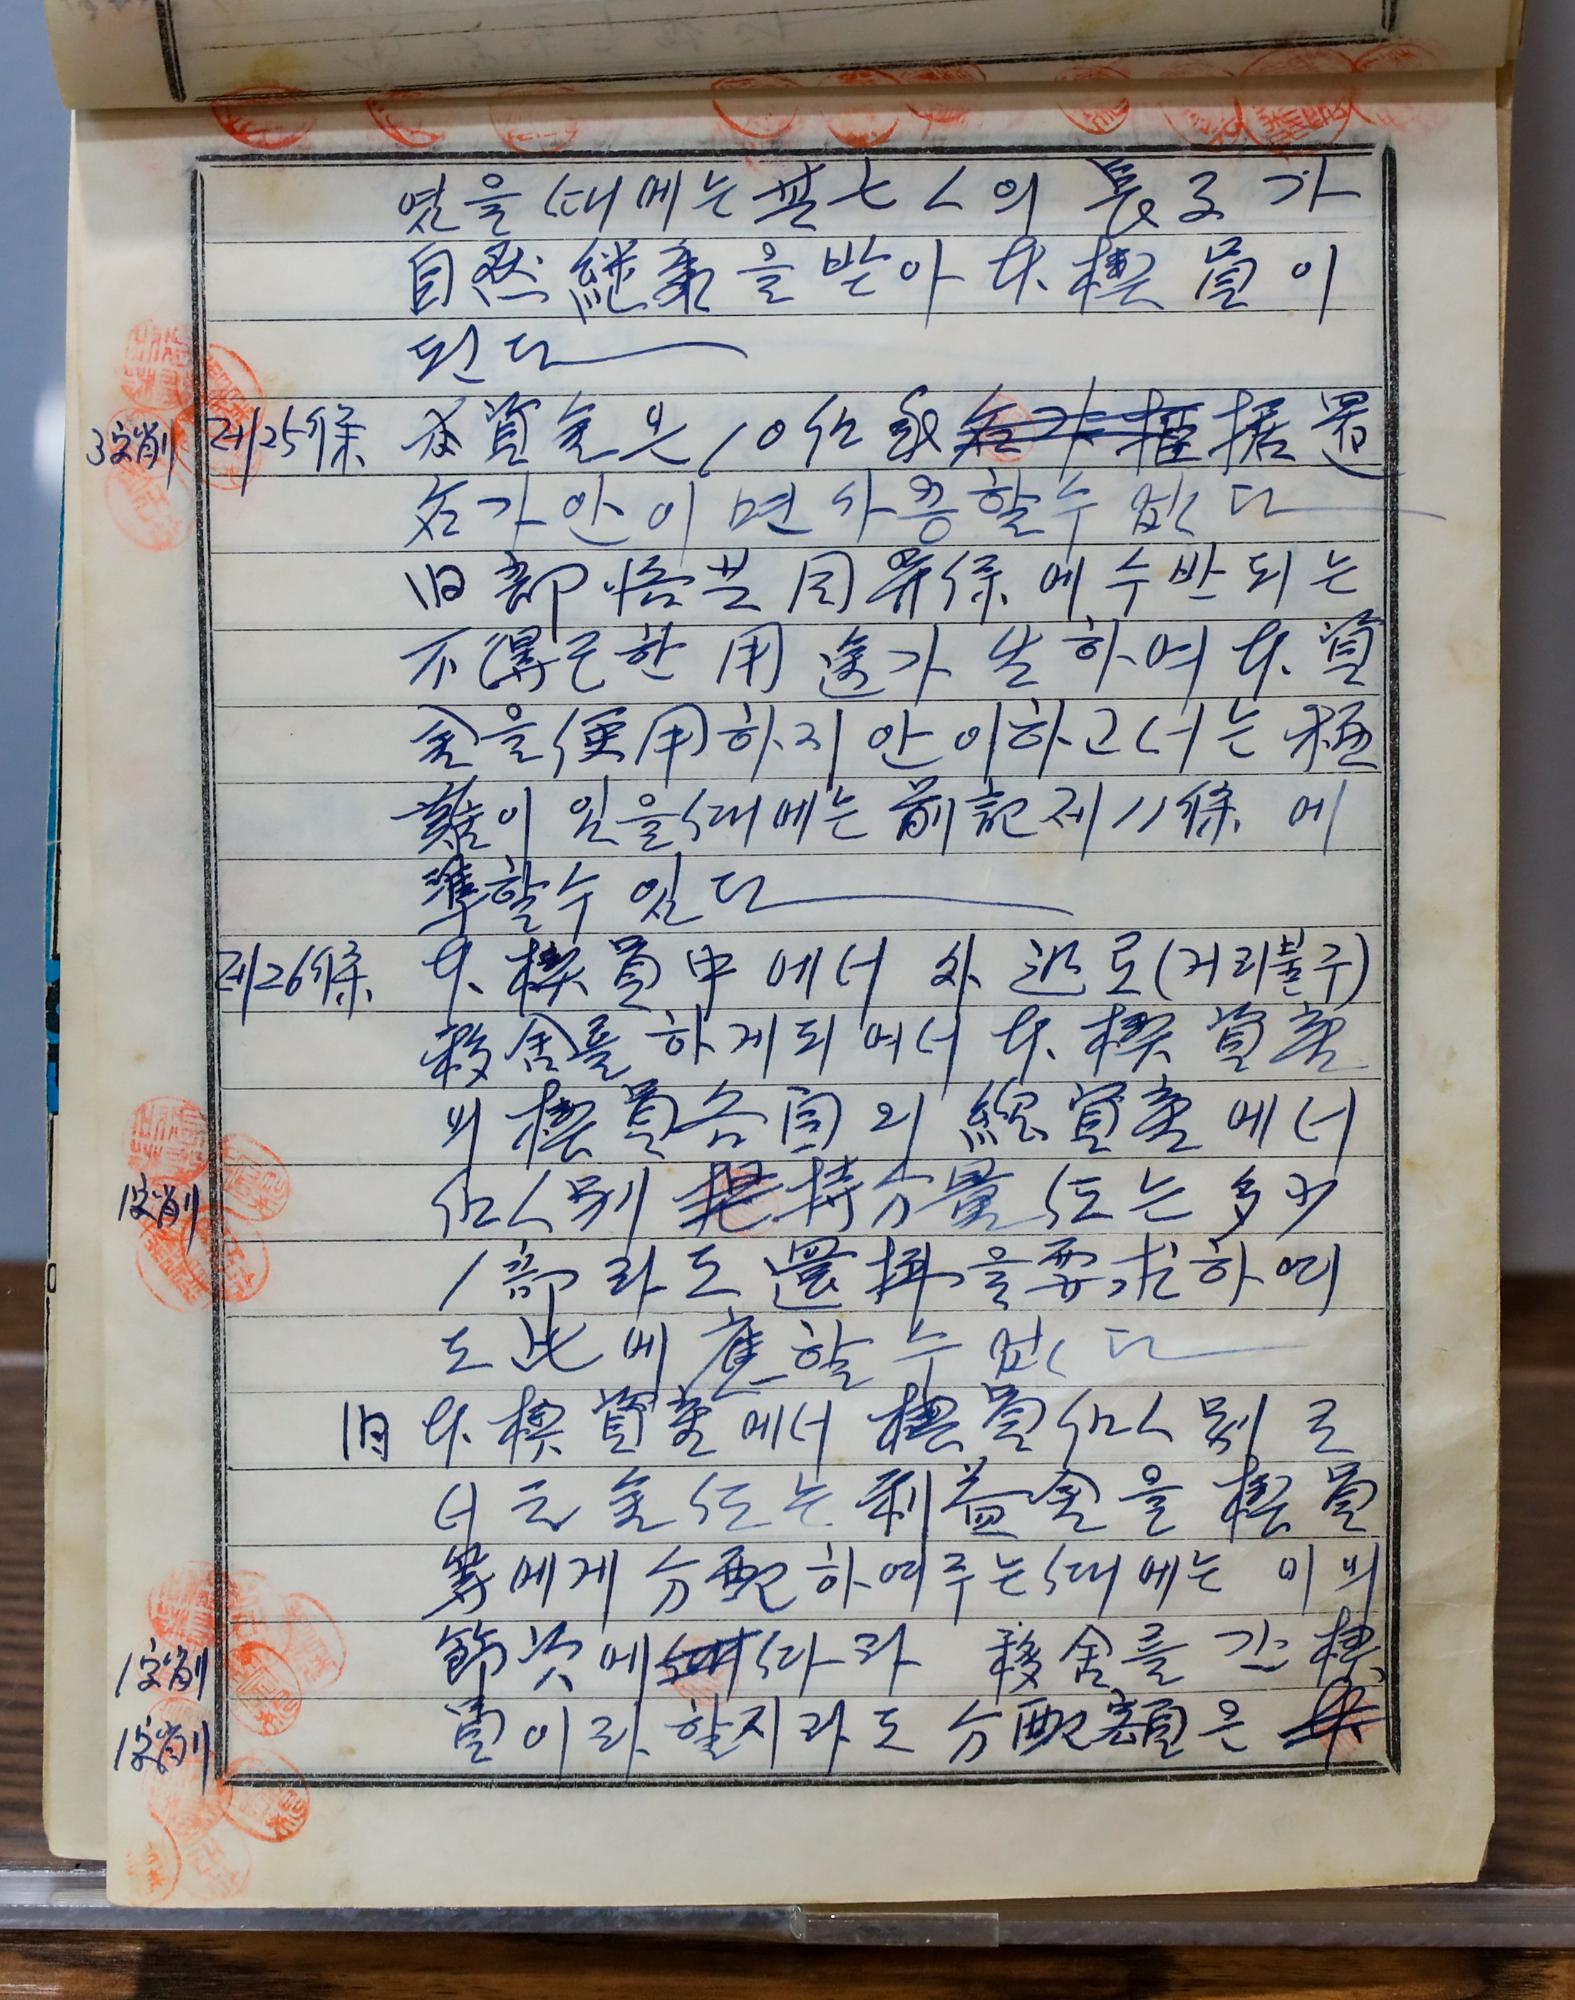 였을 때에는 其亡人의 長子가
自然継承을 받아 本 楔員이
된다
3字削 제25條 本資金은 10個年 据置
가 안이면 사용할 수 없다
但 部落共同関係에 수반되는
不得已한 用途가 生하며 本 資
金을 使用하지 안이하고서는 極
難이 있을 때에는 前記 제11條에
準할 수 있다
제26條 本 楔員中에서 外 道로 (거리불구)
移舍를 하게 되여서 本 楔資産
의 楔員各自의 総資産에서
1字削 個人別 持分量 또는 多少
1部라도 還拂을 要求하여
도 此에 應할 수 없다
但 本 楔資産에서 楔員個人別로
서 元金 또는 利益金을 楔員
等에게 分配하여 주는 때에는 이의
1字削 節次에 따라 移舍를 간 楔
1字削 員이라 할지라도 分配額은